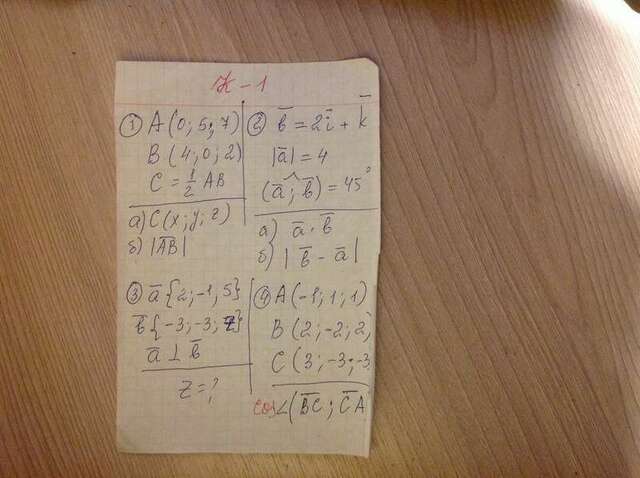 К-1
① A (0; 5; 7)
B (4; 0; 2)
C = 1/2 AB
а) C (x; y; z)
б) |A̅B̅|
② b̅ = 2i̅ + k̅
|a̅| = 4
(a̅ ^; b̅) = 45°
а) a̅ · b̅
б) | b̅ - a̅ |
③ a̅ {2; -1; 5}
b̅ {-3; -3; z}
a̅ ⊥ b̅
z = ?
④ A (-1; 1; 1)
B (2; -2; 2)
C (3; -3; -3
cos∠(B̅C̅; C̅A̅